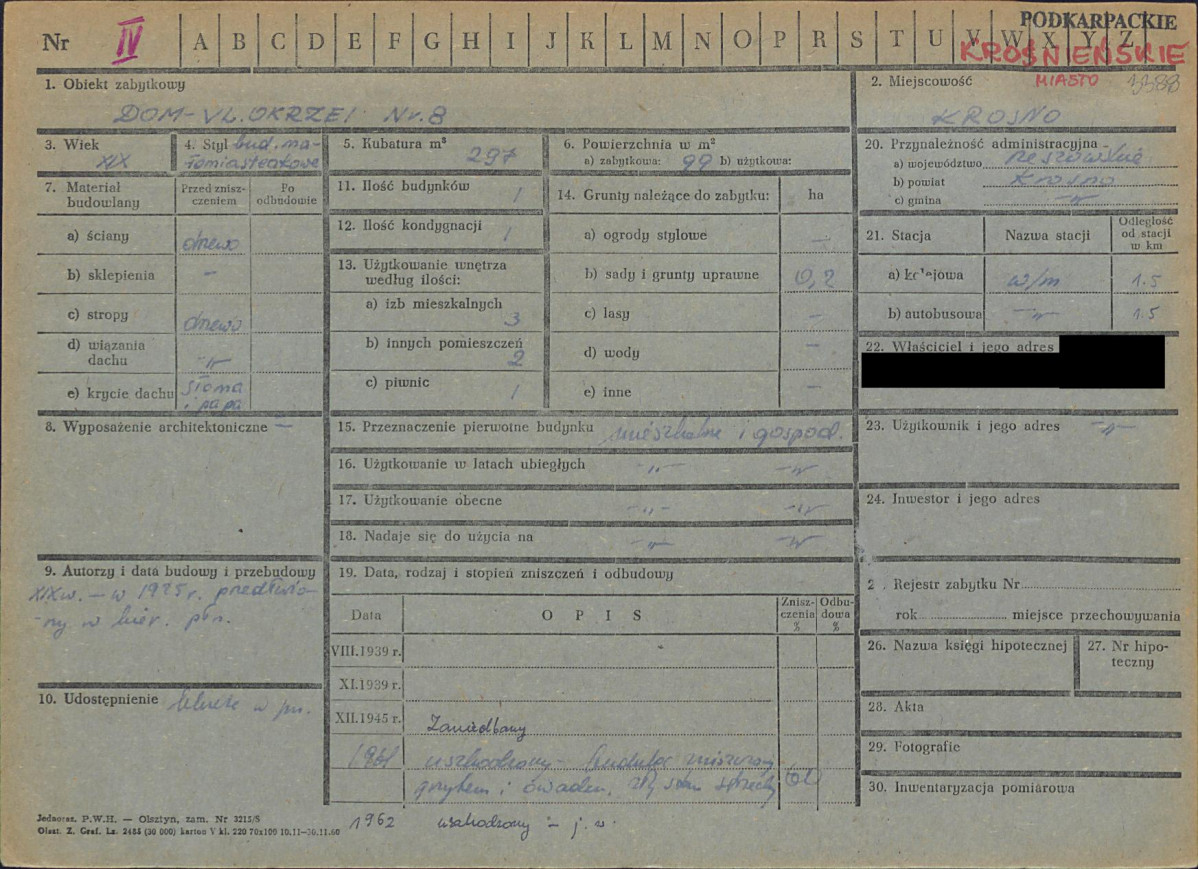 PODKARPACKIE
Nr IV A B C D E F G H I J K L M N O P R S T U V W X Y Z
KROŚNIEŃSKIE
MIASTO
1. Obiekt zabytkowy
DOM - UL. OKRZEI Nr. 8
2. Miejscowość
KROSNO
3. Wiek
XIX
4. Styl bud. ma-
łomiasteczkowe
5. Kubatura m³
297
6. Powierzchnia w m²
a) zabytkowa: 99 b) użytkowa:
7. Materiał budowlany
Przed znisz-czeniem
Po odbudowie
a) ściany drewo
b) sklepienia –
c) stropy drewo
d) wiązania dachu –„–
e) krycie dachu słoma i papa
8. Wyposażenie architektoniczne –
9. Autorzy i data budowy i przebudowy
XIXw. – w 1925 r. przedłużo-
ny w kier. płn.
10. Udostępnienie
11. Ilość budynków 1
12. Ilość kondygnacji 1
13. Użytkowanie wnętrza według ilości:
a) izb mieszkalnych 3
b) innych pomieszczeń 2
c) piwnic 1
14. Grunty należące do zabytku: ha
a) ogrody stylowe –
b) sady i grunty uprawne 0,2
c) lasy –
d) wody –
e) inne –
15. Przeznaczenie pierwotne budynku mieszkalne i gospod.
16. Użytkowanie w latach ubiegłych –„– –„–
17. Użytkowanie obecne –„– –„–
18. Nadaje się do użycia na –„– –„–
19. Data, rodzaj i stopień zniszczeń i odbudowy
Data
O P I S
Znisz-czenia %
Odbu-dowa %
VIII.1939 r.
XI.1939 r.
XII.1945 r. Zaniedbany
1961 uszkodzony – budulec zniszczony
grzybem i owadem, zły stan strzechy 60
1962 uszkodzony – j. w.
20. Przynależność administracyjna -
a) województwo rzeszowskie
b) powiat Krosno
c) gmina –„–
21. Stacja
Nazwa stacji
Odległość od stacji w km
a) kolejowa w/m 1.5
b) autobusowa –„– 1.5
22. Właściciel i jego adres
23. Użytkownik i jego adres –„–
24. Inwestor i jego adres
2 . Rejestr zabytku Nr
rok miejsce przechowywania
26. Nazwa księgi hipotecznej
27. Nr hipo-teczny
28. Akta
29. Fotografie
30. Inwentaryzacja pomiarowa
Jednoraz. P.W.H. — Olsztyn, zam. Nr 3215/S
Olszt. Z. Graf. Lz. 2485 (30 000) karton V kl. 220 70x100 10.11—30.11.60